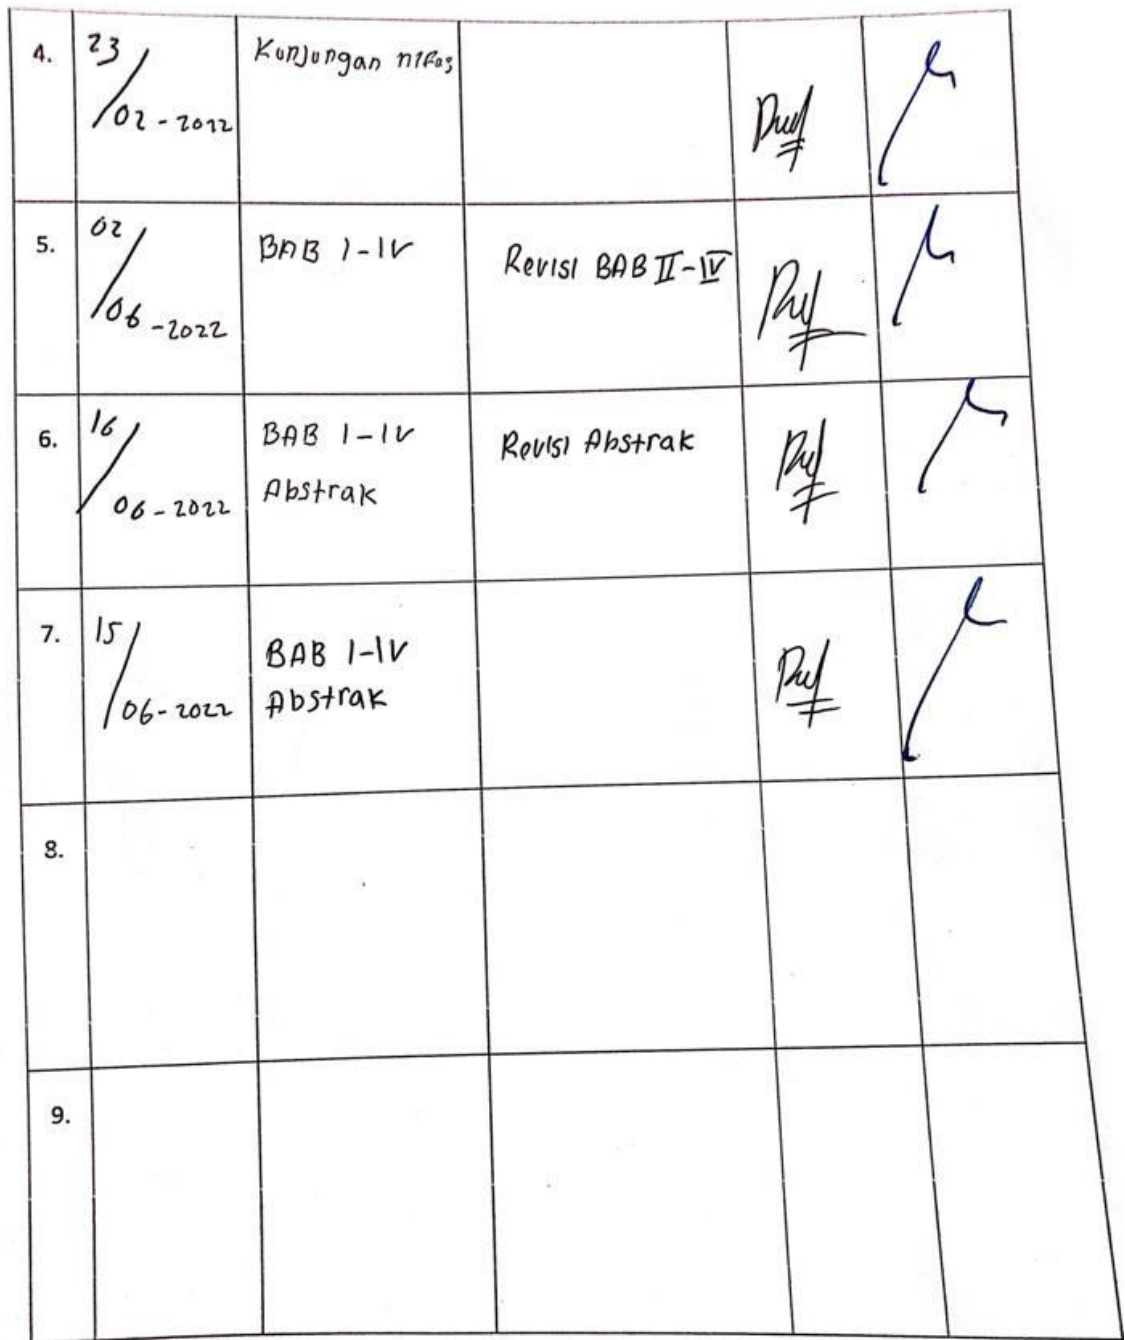 4.
23/02-2022
Kunjungan nifas
5.
02/06-2022
BAB I-IV
Revisi BAB II-IV
6.
16/06-2022
BAB I-IV
Abstrak
Revisi Abstrak
7.
15/06-2022
BAB I-IV
Abstrak
8.
9.